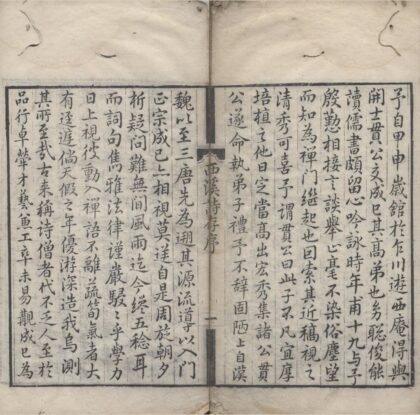 予自甲申歲館於乍川遊西庵得與
開士貫公交成巳其高弟也另聰俊能
讀儒書頗留心吟詠時年甫十九與予
殷懃相接之談舉止毫不染俗塵望
而知為禪門繼起也回索其近稿視之
清秀可喜予謂貫公曰此子不凡宜厚
培植之他日定當高出宏秀集諸公貫
公遂命執弟子禮予不辭固陋上自漢
西溪詩存序
一
魏以至三唐先為遡其源流導以入門
正宗成巳一相視莫逆自是周於朝夕
析疑問難無間風雨迄今纔五稔耳
而詞句雋雅法律謹嚴駸駸乎學力
日上視彼動入禪語不離蔬筍氣者大
有逕遲倘天假之年優游深造我烏測
其所至哉古來稱詩僧者代不乏人至於
品行卓犖才藝兼工未易觀成巳為